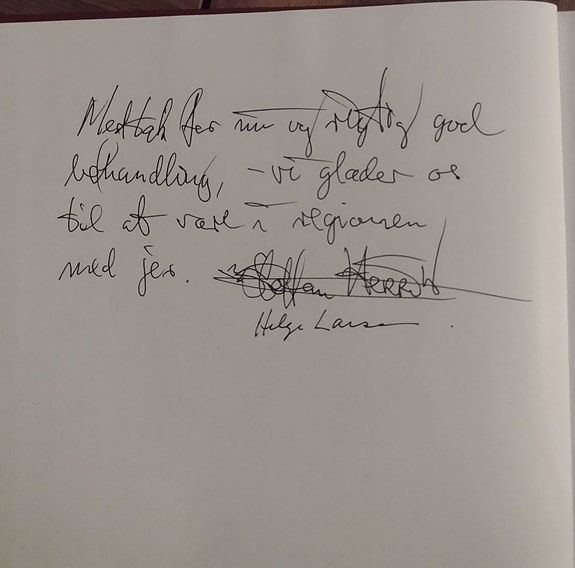 for nu og rigtig god
behandling, - vi glæder os
til at være i regionen
med jer. Steffen
Helge Larsen